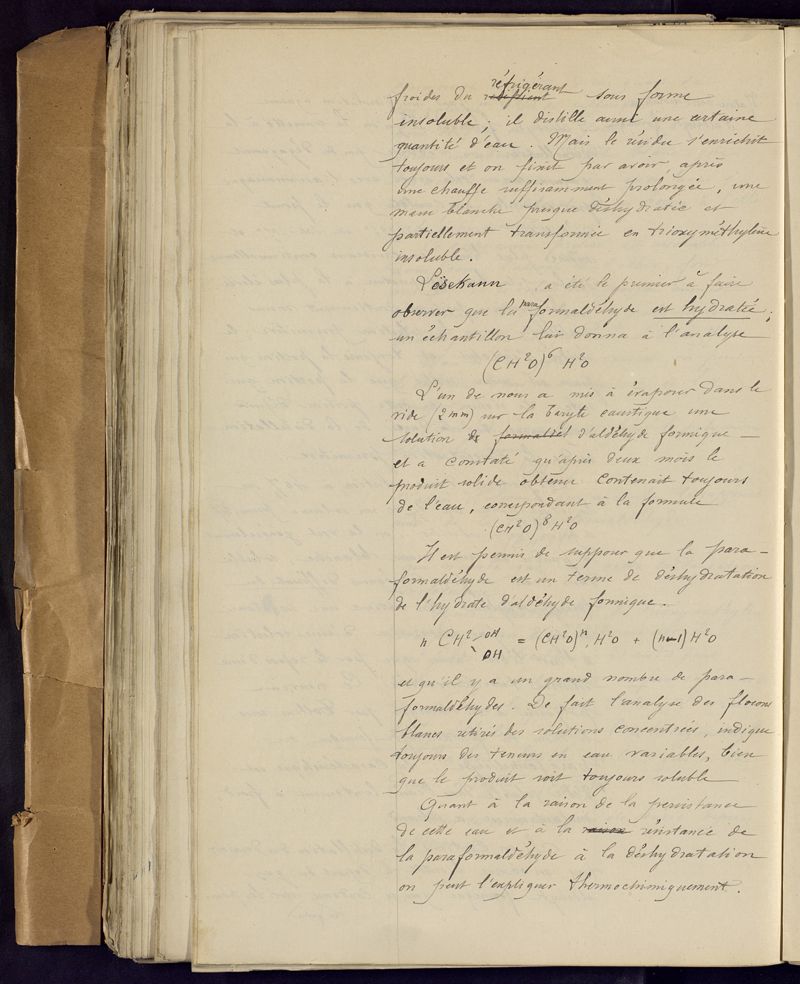 réfrigérant
froides du sous forme
insoluble; il distille aussi une certaine
quantité d'eau. Mais le résidu s'enrichit
toujours et on finit par avoir, après
une chauffe suffisamment prolongée, une
masse blanche presque déshydratée et
partiellement transformée en trioxyméthylène
insoluble.
Lösekann a été le premier à faire
observer que la paraformaldéhyde est hydratée;
un échantillon lui donna à l'analyse
(CH²O)⁶ H²O
L'un de nous a mis à évaporer dans le
vide (2 mm) sur la baryte caustique une
solution d'aldéhyde formique —
et a constaté qu'après deux mois le
produit solide obtenu contenait toujours
de l'eau, correspondant à la formule
(CH²O)⁸ H²O
Il est permis de supposer que la para-
formaldéhyde est un terme de déshydratation
de l'hydrate d'aldéhyde formique.
n CH² OH OH = (CH²O)ⁿ, H²O + (n-1) H²O
et qu'il y a un grand nombre de para-
formaldéhydes. De fait l'analyse des flocons
blancs retirés des solutions concentrées, indique
toujours des teneurs en eau variables, bien
que le produit soit toujours soluble
Quant à la raison de la persistance
de cette eau et à la raison résistance de
la paraformaldéhyde à la déshydratation
on peut l'expliquer thermochimiquement.